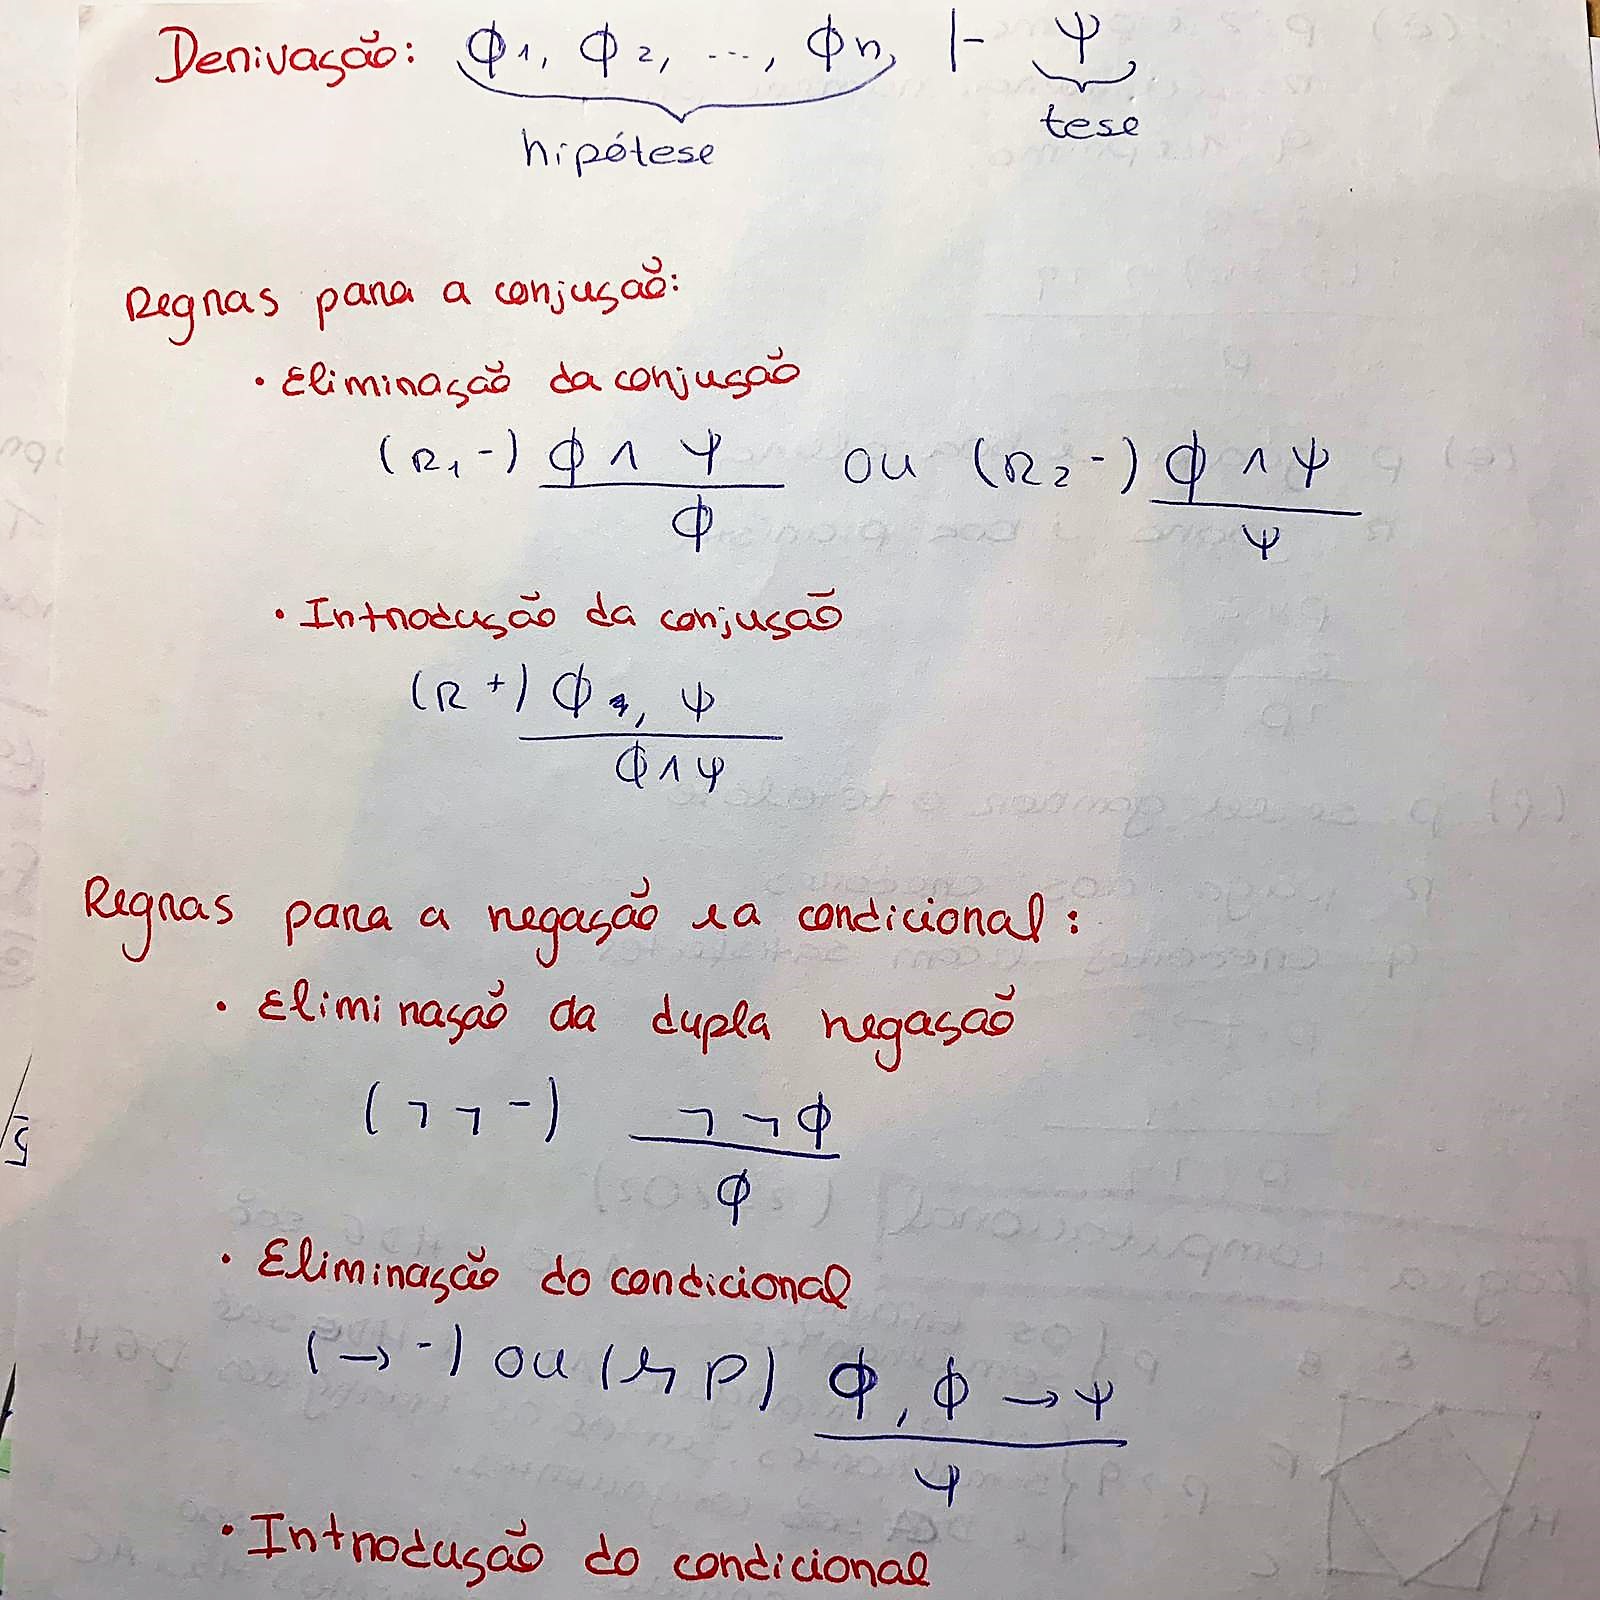 Derivação: Φ1, Φ2, ..., Φn, ⊢ Ψ
hipótese tese
Regras para a conjusão:
• Eliminação da conjusão
(R1-) Φ ∧ Ψ ou (R2-) Φ ∧ Ψ
Φ Ψ
• Introdução da conjusão
(R+) Φ, Ψ
Φ ∧ Ψ
Regras para a negação e a condicional:
• Eliminação da dupla negação
(¬¬-) ¬¬Φ
Φ
• Eliminação do condicional
(→-) ou (MP) Φ, Φ → Ψ
Ψ
• Introdução do condicional